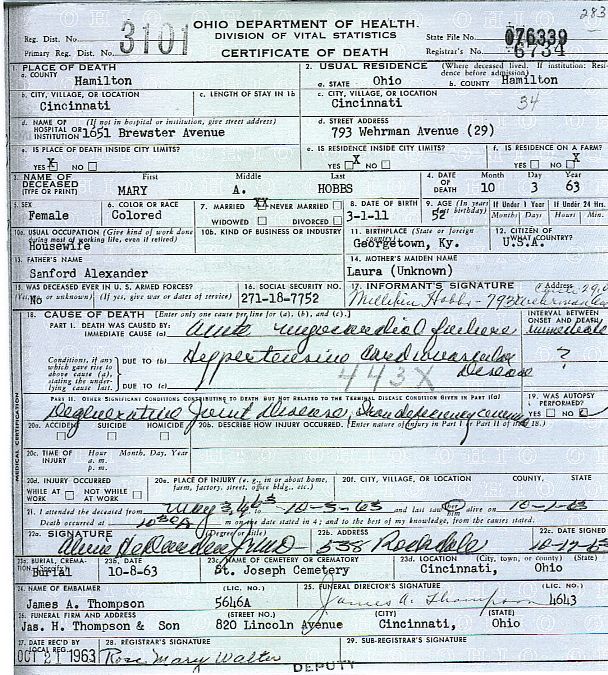 283
OHIO DEPARTMENT OF HEALTH.
DIVISION OF VITAL STATISTICS
CERTIFICATE OF DEATH
Reg. Dist. No. 3101
Primary Reg. Dist. No.
State File No. 076339
Registrar's No. 6734
1. PLACE OF DEATH
a. COUNTY Hamilton
2. USUAL RESIDENCE (Where deceased lived. If institution: Residence before admission)
a. STATE Ohio b. COUNTY Hamilton
b. CITY, VILLAGE, OR LOCATION Cincinnati
c. LENGTH OF STAY IN 1b
c. CITY, VILLAGE, OR LOCATION Cincinnati 34
d. NAME OF HOSPITAL OR INSTITUTION (If not in hospital or institution, give street address) 1651 Brewster Avenue
d. STREET ADDRESS 793 Wehrman Avenue (29)
e. IS PLACE OF DEATH INSIDE CITY LIMITS? YES X NO
e. IS RESIDENCE INSIDE CITY LIMITS? YES X NO
f. IS RESIDENCE ON A FARM? YES NO X
3. NAME OF DECEASED (TYPE OR PRINT)
First Middle Last
MARY A. HOBBS
4. DATE OF DEATH Month Day Year
10 3 63
5. SEX Female
6. COLOR OR RACE Colored
7. MARRIED XX NEVER MARRIED
WIDOWED DIVORCED
8. DATE OF BIRTH 3-1-11
9. AGE (In years last birthday) 52
If Under 1 Year Months Days
If Under 24 Hrs. Hours Min.
10a. USUAL OCCUPATION (Give kind of work done during most of working life, even if retired) Housewife
10b. KIND OF BUSINESS OR INDUSTRY
11. BIRTHPLACE (State or foreign country) Georgetown, Ky.
12. CITIZEN OF WHAT COUNTRY? U.S.A.
13. FATHER'S NAME Sanford Alexander
14. MOTHER'S MAIDEN NAME Laura (Unknown)
15. WAS DECEASED EVER IN U. S. ARMED FORCES? (Yes, no, or unknown) (If yes, give war or dates of service) No
16. SOCIAL SECURITY NO. 271-18-7752
17. INFORMANT'S SIGNATURE Address
Hobbs - 793 Wehrman
18. CAUSE OF DEATH (Enter only one cause per line for (a), (b), and (c).)
INTERVAL BETWEEN ONSET AND DEATH
PART I. DEATH WAS CAUSED BY:
IMMEDIATE CAUSE (a) Acute myocardial failure immediate
Conditions, if any, which gave rise to above cause (a), stating the underlying cause last.
DUE TO (b) Hypertensive Cardiovascular Disease ?
443X
DUE TO (c)
PART II. OTHER SIGNIFICANT CONDITIONS CONTRIBUTING TO DEATH BUT NOT RELATED TO THE TERMINAL DISEASE CONDITION GIVEN IN PART I(a)
Degenerative Joint Disease, Iron deficiency anemia
19. WAS AUTOPSY PERFORMED? YES NO
MEDICAL CERTIFICATION
20a. ACCIDENT SUICIDE HOMICIDE
20b. DESCRIBE HOW INJURY OCCURRED. (Enter nature of injury in Part I or Part II of item 18.)
20c. TIME OF INJURY Hour Month, Day, Year
a. m.
p. m.
20d. INJURY OCCURRED
WHILE AT WORK NOT WHILE AT WORK
20e. PLACE OF INJURY (e. g., in or about home, farm, factory, street, office bldg., etc.)
20f. CITY, VILLAGE, OR LOCATION COUNTY, STATE
21. I attended the deceased from May 3, 1963 to 10-3-63 and last saw her him alive on 10-1-63
Death occurred at 1030A m on the date stated in 4; and to the best of my knowledge, from the causes stated.
22a. SIGNATURE (Degree or title)
22b. ADDRESS 538 Rockdale
22c. DATE SIGNED 10-17-63
23a. BURIAL, CREMATION Burial
23b. DATE 10-8-63
23c. NAME OF CEMETERY OR CREMATORY St. Joseph Cemetery
23d. LOCATION (City, town, or county) (State) Cincinnati, Ohio
24. NAME OF EMBALMER (LIC. NO.)
James A. Thompson 5646A
25. FUNERAL DIRECTOR'S SIGNATURE (LIC. NO.)
James A. Thompson 4643
26. FUNERAL FIRM AND ADDRESS (STREET NO.) (CITY) (STATE)
Jas. H. Thompson & Son 820 Lincoln Avenue Cincinnati, Ohio
27. DATE REC'D BY LOCAL REG. OCT 21 1963
28. REGISTRAR'S SIGNATURE Rose Mary Walter
DEPUTY
29. SUB-REGISTRAR'S SIGNATURE